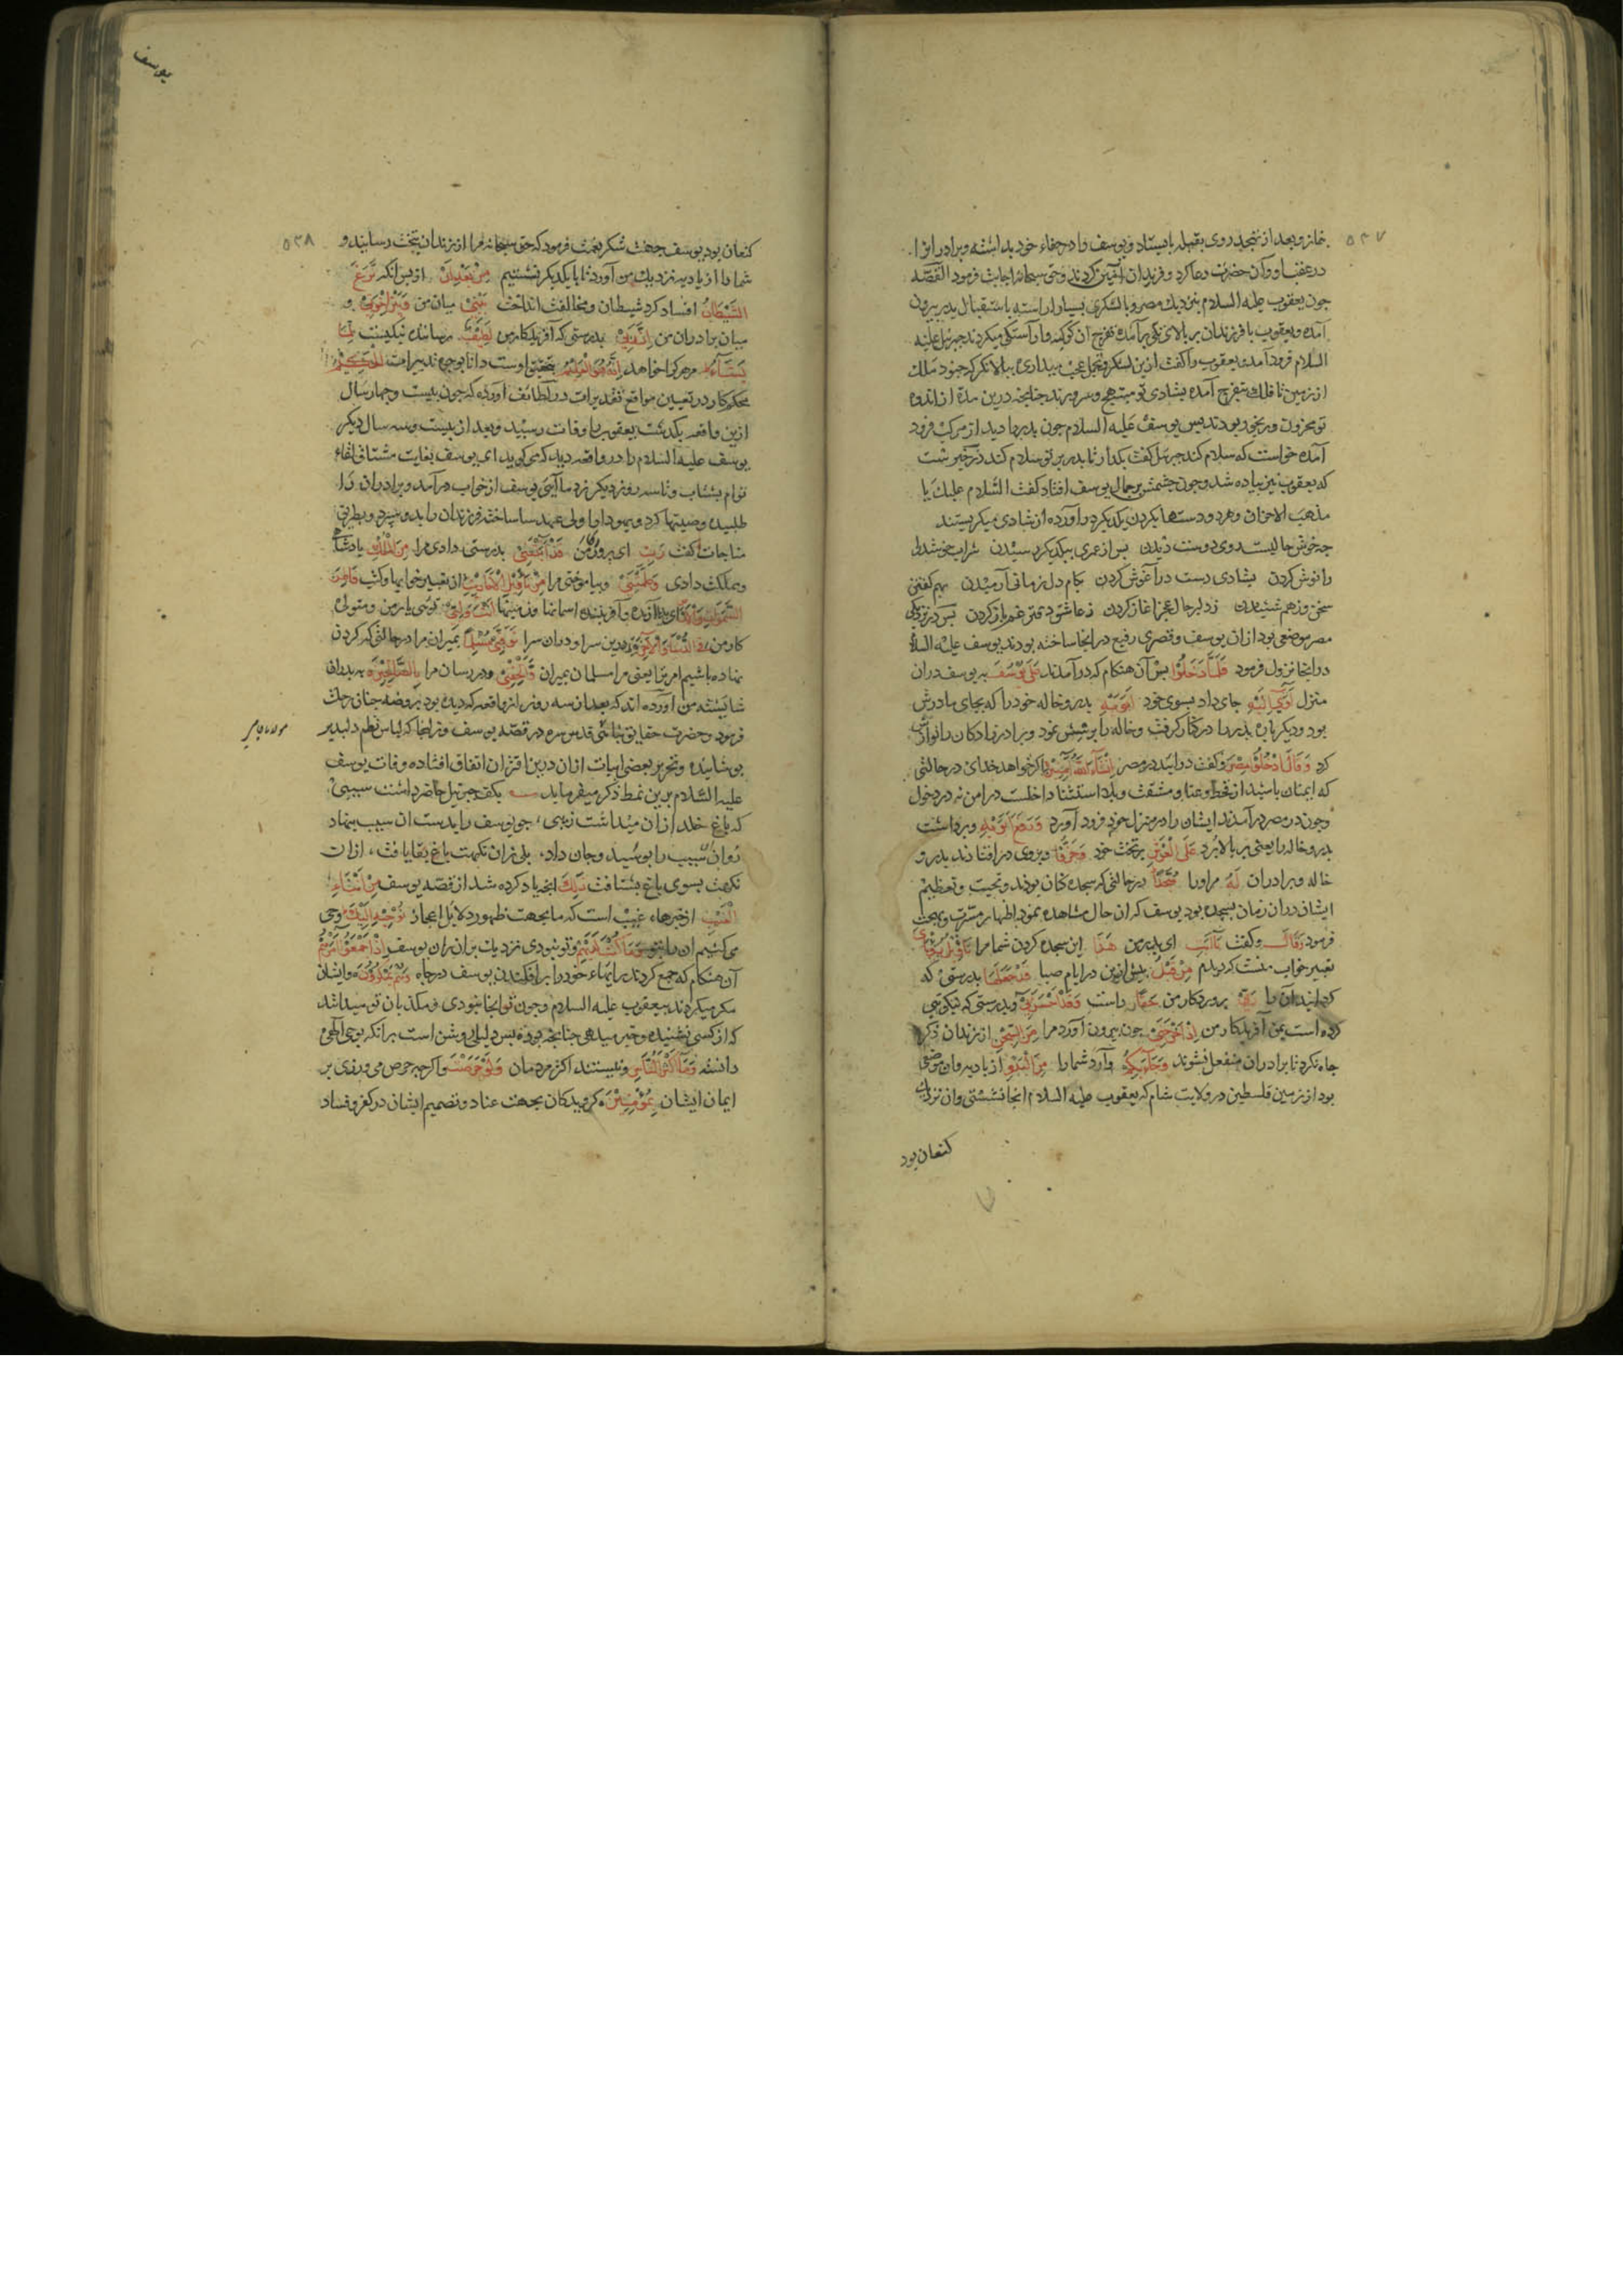 ۵۳۷
نماز و بعد از تهجد روی بقبله بایستاد و یوسف را در قفاء خود بداشت و برادرانرا
در عقب او و آن حضرت دعا کرد و فرزندان آمین کردند و حق سبحانه اجابت فرمود القصه
چون یعقوب علیه السلام بنزدیک مصر و با لشکری بسیار اراسته باستقبال پدر بیرون
آمده و یعقوب با فرزندان بر بالای تلی برآمده تفرج آن کوکبه و آراستگی میکردند جبرئیل علیه
السلام فرود آمد که یعقوب را گفت ازین لشکر و تجمل عجب میداری ببالا نکر که جنود ملک
از زمین تا فلک بتفرج آمده بشادی تو مبتهج و مسرورند چنانچه درین مدة از اندوه
تو محزون و رنجور بودند پس یوسف علیه السلام چون پدر را دید از مرکب فرود
آمده خواست که سلام کند جبرئیل گفت بگذار تا پدر بر تو سلام کند در خبرست
که یعقوب نیز پیاده شد و چون چشمش بر جمال یوسف افتاد گفت السلام علیک یا
مذهب الاحزان و هر دو دستها بگردن یکدیگر درآورده از شادی میگریستند
چه خوش حالیست روی دوست دیدن پس از عمری بیکدیگر رسیدن شراب خوشدلی
را نوش کردن بشادی دست در آغوش کردن بکام دل زمانی آرمیدن بهم گفتن
سخن وز هم شنیدن ز دلبر حال عجز اغاز کردن ز عاشق دفتر غم باز کردن پس در نزدیکی
مصر موضعی بود ازان یوسف و قصری رفیع در انجا ساخته بودند یوسف علیه السلام
در انجا نزول فرمود فَلَمَّا دَخَلُوا پس آن هنکام که درآمدند عَلَى يُوسُفَ بر یوسف دران
منزل آوَى إِلَيْهِ جای داد بسوی خود أَبَوَيْهِ پدر و خاله خود را که بجای مادرش
بود و دیکر باره پدر را در کنار کرفت و خاله را پرسش نمود و برادرزادکان را نوازش
کرد وَقَالَ ادْخُلُوا مِصْرَ و کفت درایید در مصر إِنْ شَاءَ اللَّهُ آمِنِينَ اکر خواهد خدای در حالتی
که ایمنان باشید از قحط و عنا و مشقت و بلا استثنا داخلست در امن نه در دخول
و چون در مصر درآمدند ایشان را در منزل خود فرود آورد وَرَفَعَ أَبَوَيْهِ و برداشت
پدر و خاله را یعنی بر بالا برد عَلَى الْعَرْشِ بر تخت خود وَخَرُّوا و بروی در افتادند پدر و
خاله و برادران لَهُ مر او را سُجَّدًا در حالتی که سجده کنان بودند و تحیت و تعظیم
ایشان دران زمان بسجده بود یوسف که ان حال مشاهده نمود اظهار مسرت و بهجت
فرمود وَقَالَ و کفت يَا أَبَتِ ای پدر من هَذَا این سجده کردن شما مرا تَأْوِيلُ رُؤْيَايَ
تعبیر خواب منست که دیدم مِنْ قَبْلُ پیش ازین در ایام صبا قَدْ جَعَلَهَا بدرستی که
کردانید آن را رَبِّي پروردکار من حَقًّا راست وَقَدْ أَحْسَنَ بِي و بدرستی که نیکویی
کرده است بمن آفریدکار من إِذْ أَخْرَجَنِي چون بیرون آورد مرا مِنَ السِّجْنِ از زندان ذکر
چاه نکرد تا برادران منفعل نشوند وَجَاءَ بِكُمْ و آورد شما را مِنَ الْبَدْوِ از بادیه و ان موضعی
بود از زمین فلسطین در ولایت شام که یعقوب علیه السلام انجا نشستی و ان نزدیک
کنعان بود
یوسف
۵۳۸
کنعان بود یوسف جهت شکر نعمت فرمود که حق سبحانه مرا از زندان بتخت رسانید و
شما را از بادیه نزدیک من آورد تا با یکدیکر نشستیم مِنْ بَعْدِ أَنْ از پس انکه نَزَغَ
الشَّيْطَانُ افساد کرد شیطان و مخالفت انداخت بَيْنِي میان من وَبَيْنَ إِخْوَتِي و
میان برادران من إِنَّ رَبِّي بدرستی که آفریدکار من لَطِيفٌ رساننده نیکیست لِمَا
يَشَاءُ مر هر که را خواهد إِنَّهُ هُوَ الْعَلِيمُ بتحقیق اوست دانا بوجوه تدبیرات الْحَكِيمُ
محکم کار در تعیین مواقع تقدیرات در لطائف آورده که چون بیست و چهار سال
ازین واقعه بکذشت یعقوب را وفات رسید و بعد از بیست و سه سال دیکر
یوسف علیه السلام پدر را در واقعه دید که می کوید ای یوسف بغایت مشتاق لقاء
توام بشتاب و تا سه روز دیکر نزد ما آی یوسف از خواب درآمد و برادران را
طلبیده وصیتها کرد و یهودا را ولی عهد ساخت و فرزندان را بدو سپرد و بطریق
مناجات کفت رَبِّ ای پروردکار من قَدْ آتَيْتَنِي بدرستی دادی مرا مِنَ الْمُلْكِ پادشاهی
و مملکت دادی وَعَلَّمْتَنِي و بیاموختی مرا مِنْ تَأْوِيلِ الْأَحَادِيثِ از تعبیر خوابها و کتب فَاطِرَ
السَّمَاوَاتِ وَالْأَرْضِ ای آفریننده اسمانها و زمینها أَنْتَ وَلِيِّي تویی یار من و متولی
کار من فِي الدُّنْيَا وَالْآخِرَةِ درین سرا و دران سرا تَوَفَّنِي مُسْلِمًا بمیران مرا در حالتی که کردن
نهاده باشیم امر ترا یعنی مرا مسلمان بمیران وَأَلْحِقْنِي و در رسان مرا بِالصَّالِحِينَ به پدران
شایسته من آورده اند که بعد از سه روز از واقعه که دیده بود بروضه جنان رحلت
فرمود و حضرت حقایق پناهی قدس سره در قصه یوسف و زلیخا که لباس نظم دلپذیر
مولانا جامی
پوشانیده و تحریر بعضی ابیات ازان درین اوراق اتفاق افتاده وفات یوسف
علیه السلام برین نمط ذکر میفرماید بکف جبرئیل حاضر داشت سیبی
که باغ خلد ازان میداشت زیبی چو یوسف را بدست ان سیب بنهاد
روان ان سیب را بویید و جان داد بلی زان نکهت باغ بقا یافت ازان
نکهت بسوی باغ بشتافت ذَلِكَ انچه یاد کرده شد از قصه یوسف مِنْ أَنْبَاءِ
الْغَيْبِ از خبرهاء غیب است که ما بجهت ظهور دلایل اعجاز نُوحِيهِ إِلَيْكَ وحی
می کنیم ان را بتو وَمَا كُنْتَ لَدَيْهِمْ و تو نبودی نزدیک برادران یوسف إِذْ أَجْمَعُوا أَمْرَهُمْ
آن هنکام که جمع کردند رایهاء خود را بر افکندن یوسف در چاه وَهُمْ يَمْكُرُونَ و ایشان
مکر میکردند بیعقوب علیه السلام و چون تو انجا نبودی و مکذبان تو میدانند
که از کسی نشنیده و خبر میدهی چنانچه بوده پس دلیلی روشن است بر انکه بوحی الهی
دانسته وَمَا أَكْثَرُ النَّاسِ و نیستند اکثر مردمان وَلَوْ حَرَصْتَ و اکرچه حرص می ورزی بر
ایمان ایشان بِمُؤْمِنِينَ کرویدکان بجهت عناد و تصمیم ایشان در کفر و فساد